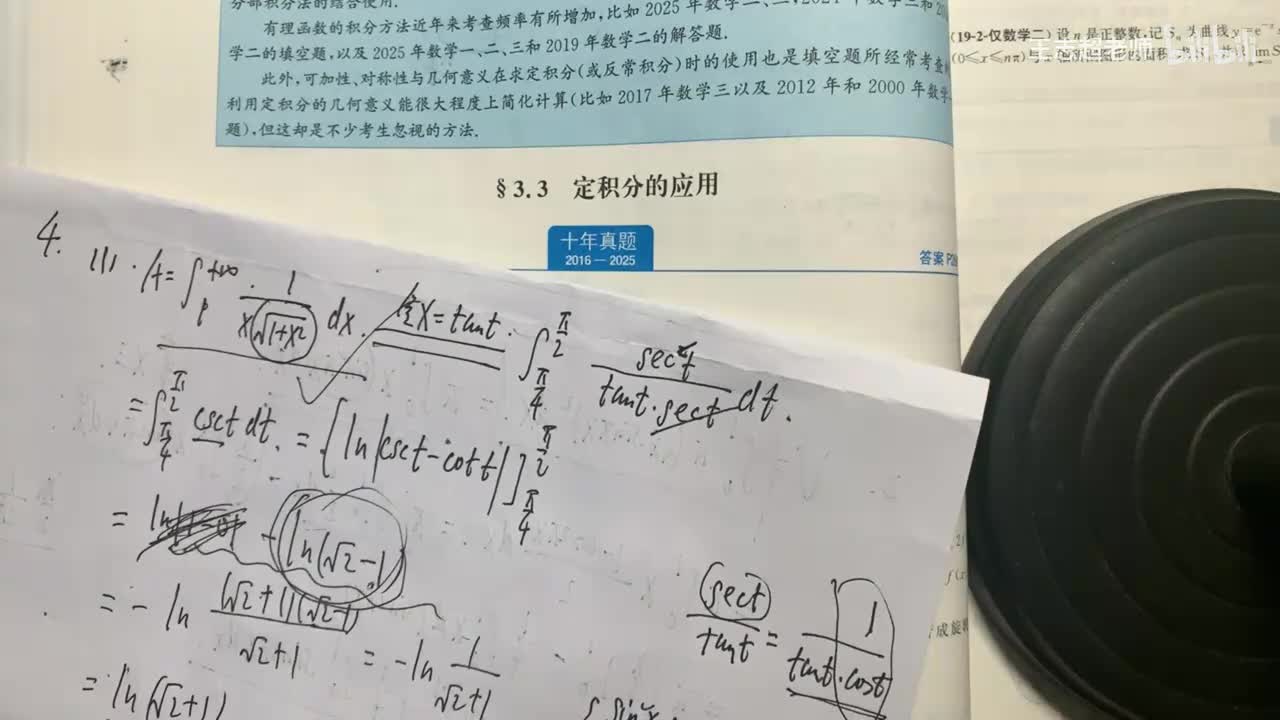 分部积分法的结合使用.
有理函数的积分方法近年来考查频率有所增加,比如 2025 年数学一、二,2021 年数学三和
学二的填空题,以及 2025 年数学一、二、三和 2019 年数学二的解答题.
此外,可加性、对称性与几何意义在求定积分(或反常积分)时的使用也是填空题所经常考查
利用定积分的几何意义能很大程度上简化计算(比如 2017 年数学三以及 2012 年和 2000 年数学
题),但这却是不少考生忽视的方法.
§3.3 定积分的应用
十年真题
2016—2025
答案
(19-2-仅数学二) 设 n 是正整数,记 Sₙ 为曲线
(0≤x≤nπ)与
bilibili
4.
(1). A=∫₁^{+∞} 1/(x√(1+x²)) dx. 令x=tant. ∫_{π/4}^{π/2} sec²t/(tant·sect) dt.
=∫_{π/4}^{π/2} csct dt. = [ln|csct-cott|]_{π/4}^{π/2}
= -ln(√2-1)
= -ln (√2+1)(√2-1)/(√2+1) = -ln 1/(√2+1)
= ln(√2+1)
sect/tant = 1/(tant·cost)